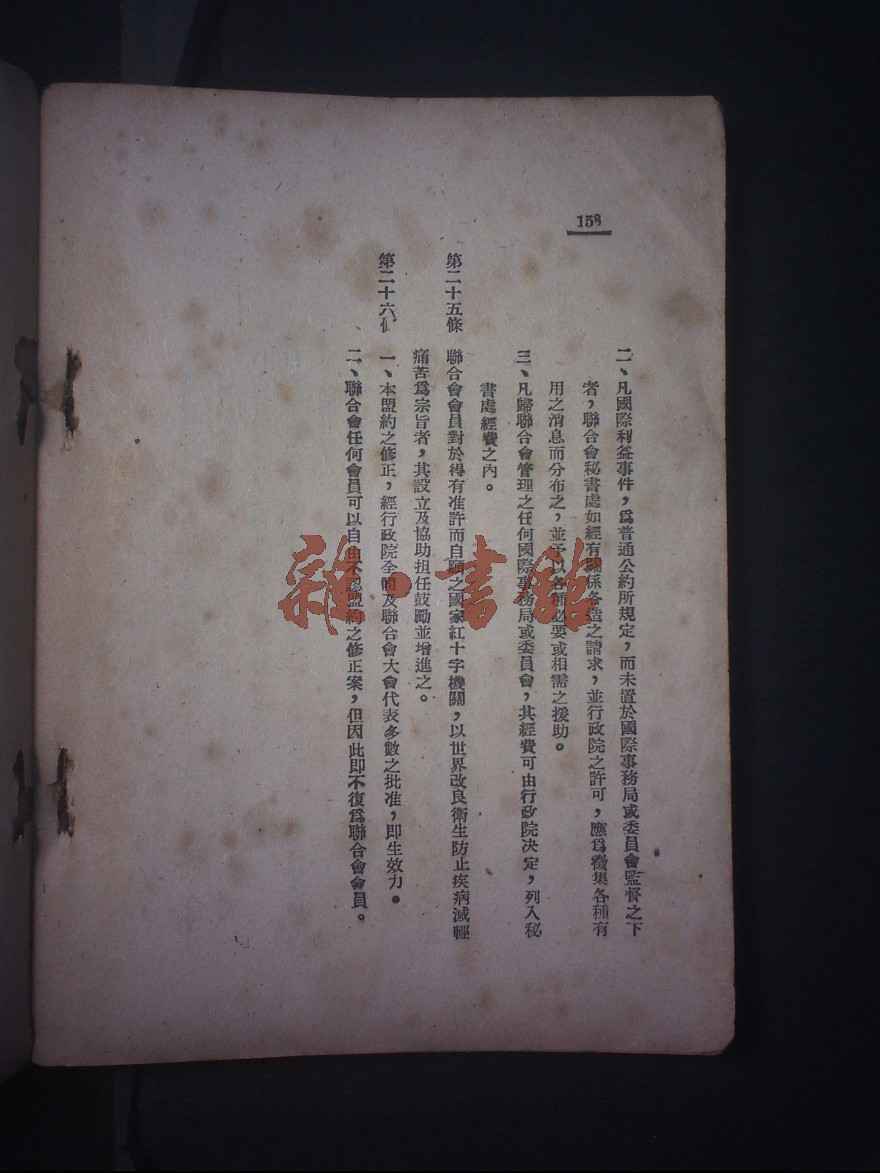 158
二、凡國際利益事件，爲普通公約所規定，而未置於國際事務局或委員會監督之下
者，聯合會秘書處如經有關係各造之請求，並行政院之許可，應爲徵集各種有
用之消息而分布之，並予以各種必要或相需之援助。
三、凡歸聯合會管理之任何國際事務局或委員會，其經費可由行政院決定，列入秘
書處經費之內。
第二十五條
聯合會會員對於得有准許而自願之國家紅十字機關，以世界改良衛生防止疾病減輕
痛苦爲宗旨者，其設立及協助担任鼓勵並增進之。
第二十六條
一、本盟約之修正，經行政院全體及聯合會大會代表多數之批准，即生效力。
二、聯合會任何會員可以自由不認盟約之修正案，但因此即不復爲聯合會會員。
雜·書館